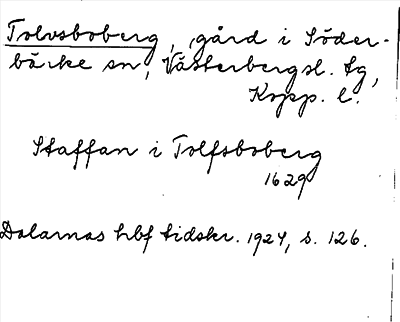 Tolvsboberg, gård i Söder-
bärke sn, Västerbergsl. tg,
Kopp. l.
Staffan i Tolfsboberg
1629
Dalarnas hbf tidskr. 1924, s. 126.